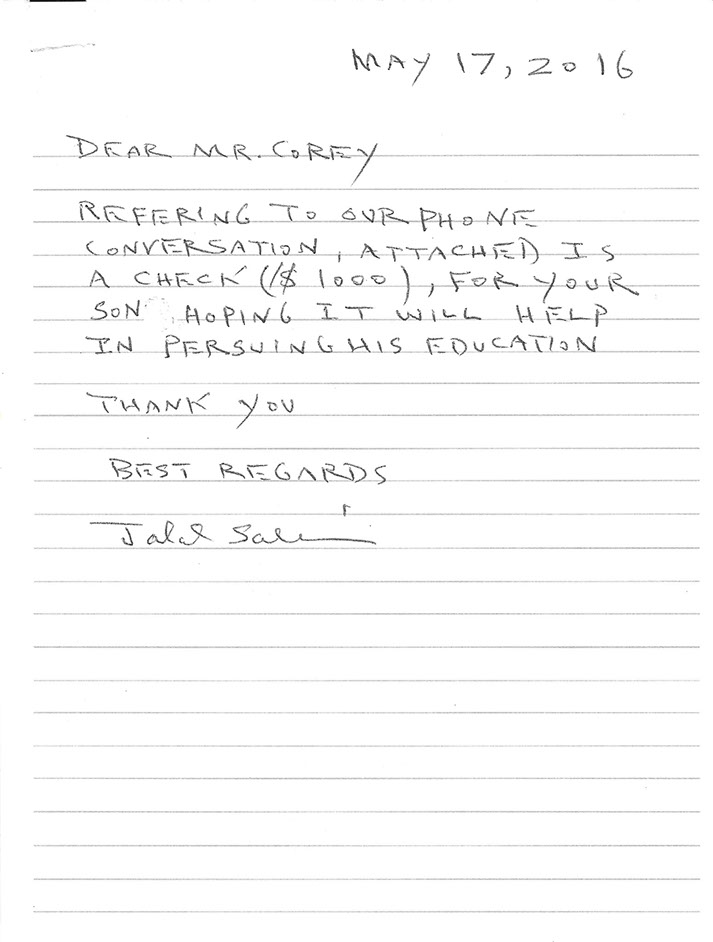 MAY 17, 2016
DEAR MR. COREY
REFERING TO OUR PHONE
CONVERSATION, ATTACHED IS
A CHECK ($ 1000), FOR YOUR
SON HOPING IT WILL HELP
IN PERSUING HIS EDUCATION
THANK YOU
BEST REGARDS
Jalal